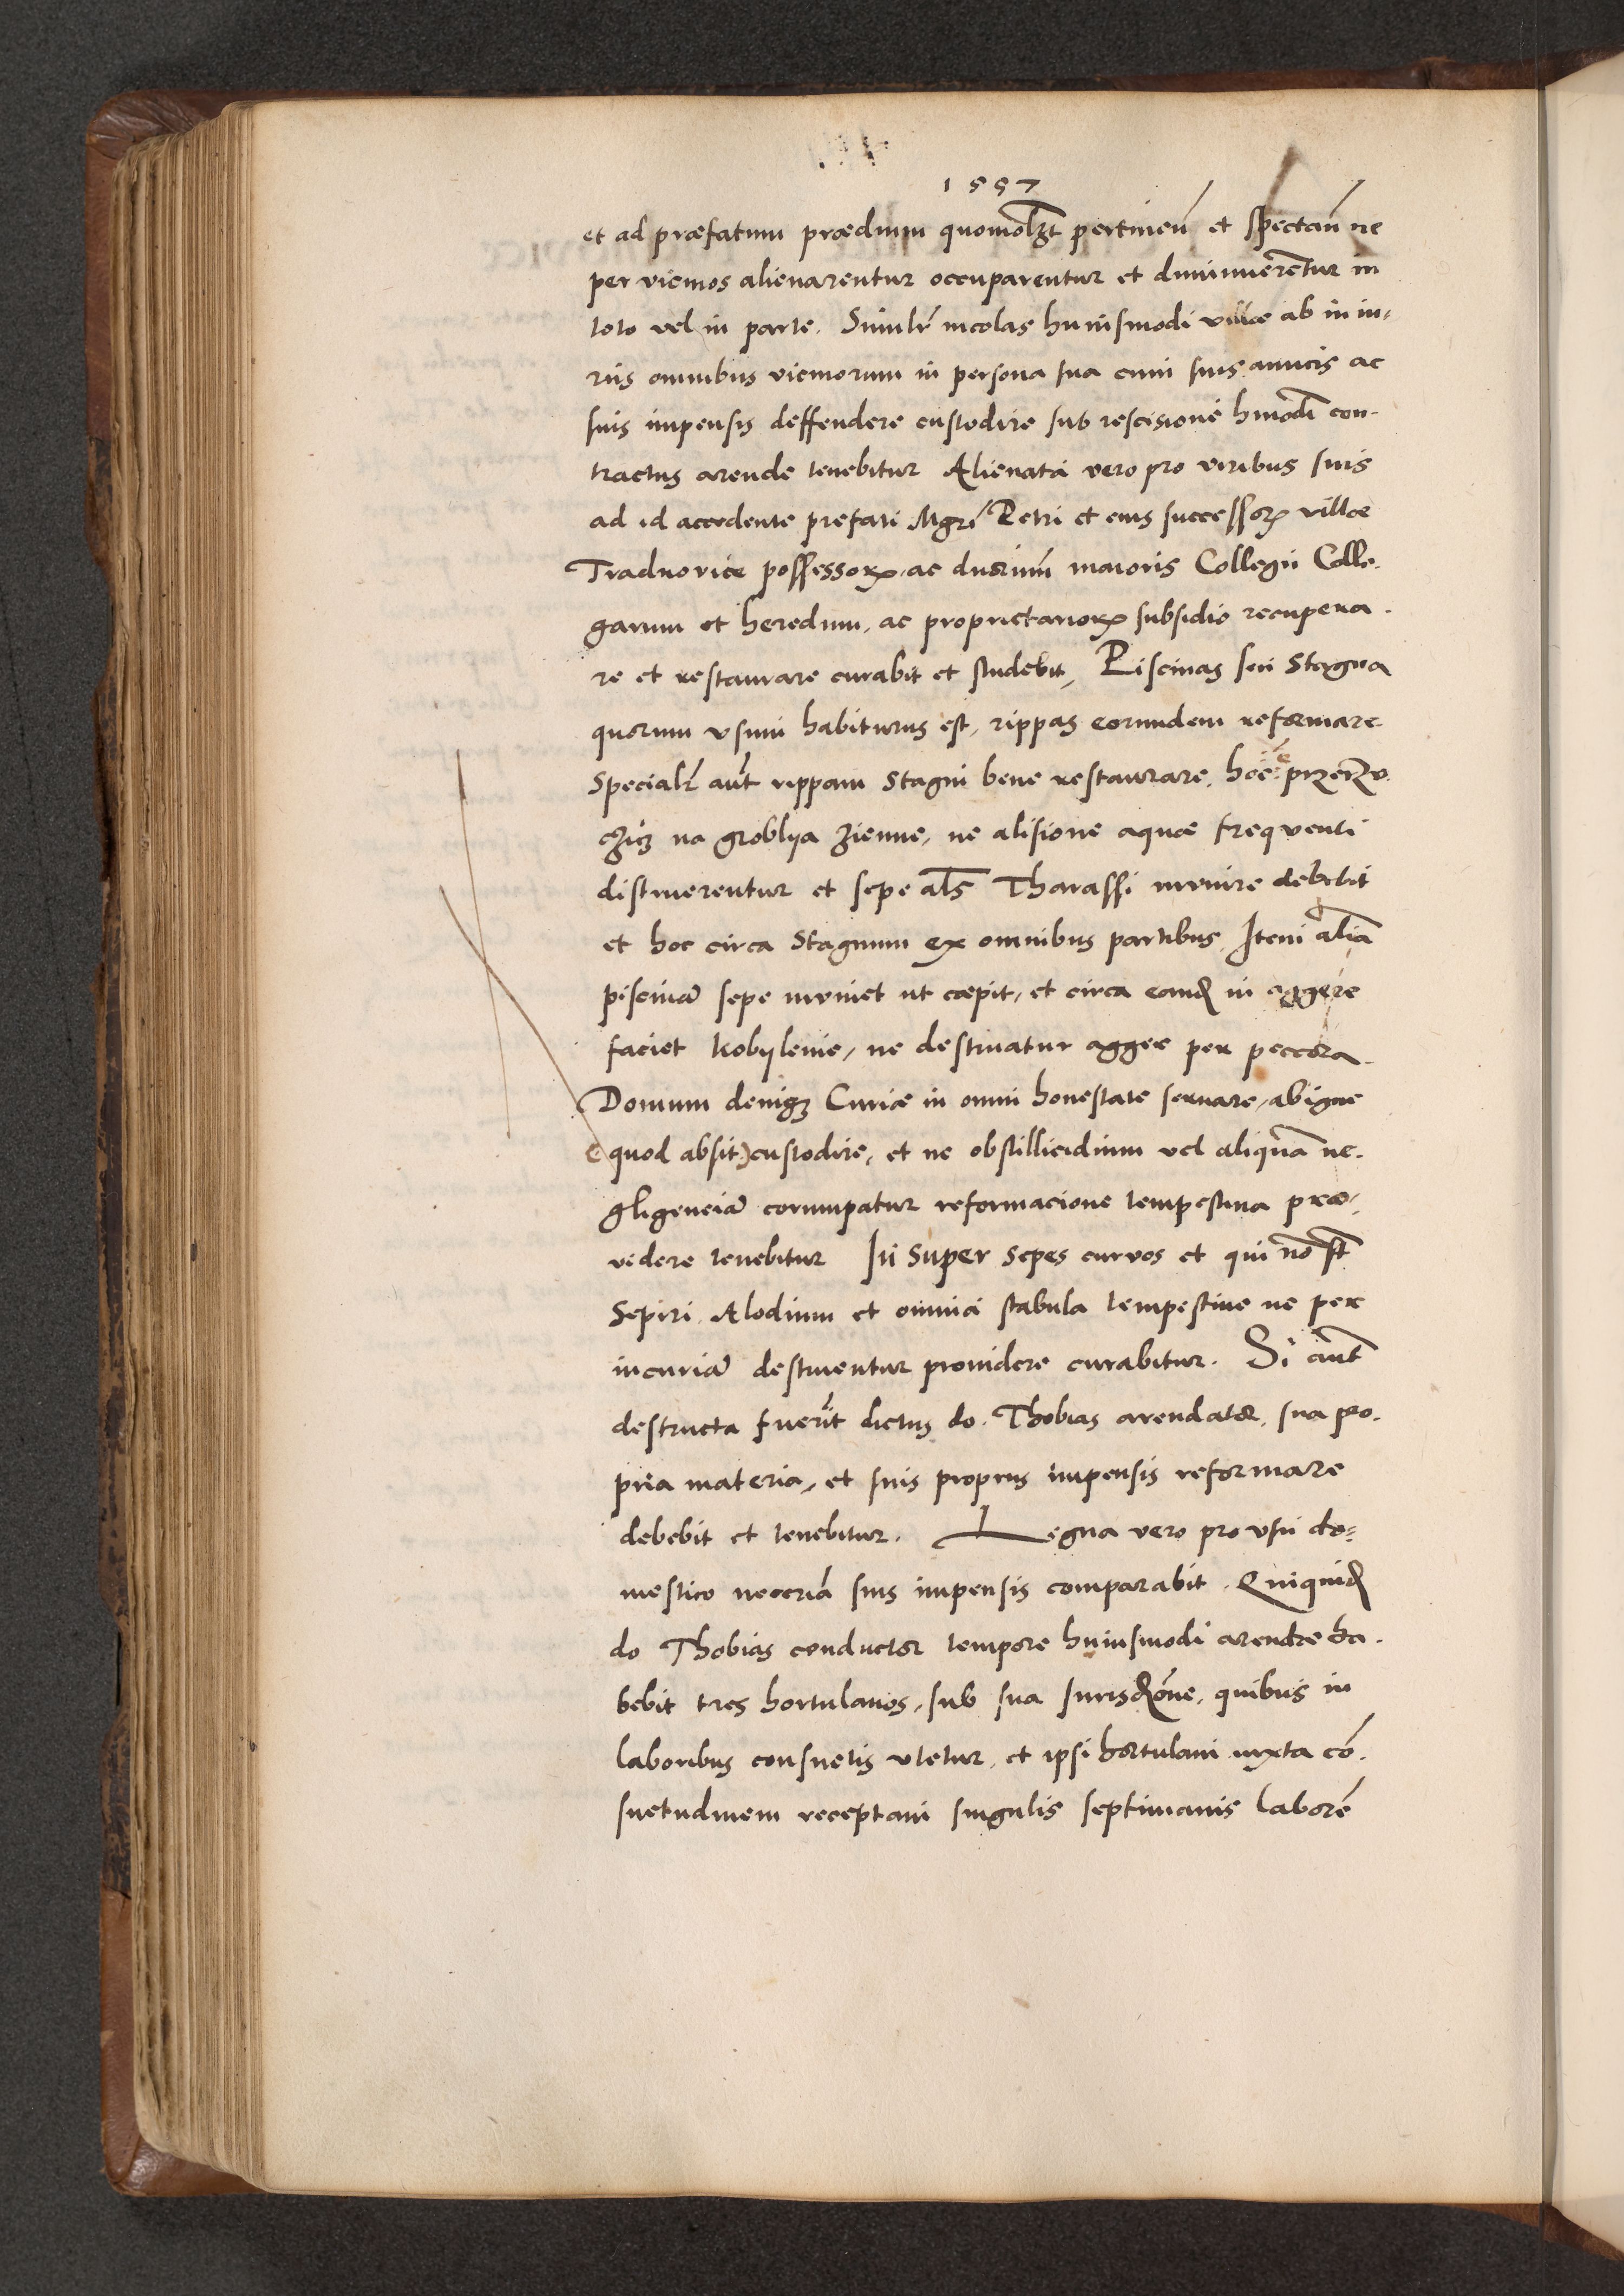 1557
et ad præfatum prædium quomōlzt pertineń et spectań ne
per vicinos alienarentur occuparentur et diminuerēntur in
toto vel in parte. Similr̄ incolas huiusmodi villæ ab in iu-
riis omnibus vicinorum in persona sua cum suis amicis ac
suis impensis deffendere custodire sub rescisione hmodī con-
tractus arende tenebitur Alienata vero pro viribus suis
ad id accedente prefati Mgrī Petri et eius successorꝝ villæ
Traduorice possessorꝝ ac duorum̄ maioris Collegii Colle-
garum et heredum, ac proprietariorꝝ subsidio recupera-
re et restaurare curabit et studebit, Piscinas seu Stagna
quorum vsum habiturus est, rippas eorundem reformare
Specialr̄ aūt rippam Stagni bene restaurare, hoc ē
na groblya zienne, ne alisione aquæ frequenti
distruerentur et sepe al̄s Tharassi munire debebit
et hoc circa Stagnum ex omnibus partibus, Item aliā
piscinā sepe muniet ut cæpit, et circa eandꝫ in aggere
faciet kobylenie, ne destruatur agger per peccora.
Domum deniqꝫ Curiæ in omni honestate seruare, ab igne
(quod absit) custodire, et ne obstillicidium vel aliquā ne-
gligenciā corumpatur reformacione tempestiua præ-
videre tenebitur In super sepes curvos et qui nō st̄
Sepiri, Alodium et omnia stabula tempestiue ne per
incuriā destruentur prouidere curabitur. Si aūt
destructa fuerīt dictus do. Thobias arendator, sua pro-
pria materia, et suis propriis impensis reformare
debebit et tenebitur. Legna vero pro vsu do-
mestico neceriā suis impensis comparabit. Quiquidꝫ
do Thobias conductor tempore huiusmodi arendæ ha-
bebit tres hortulanos, sub sua Jurisdōne, quibus in
laboribus consuetis vtetur, et ipsi hortulani iuxta cō-
suetudinem receptam singulis septimanis laborē